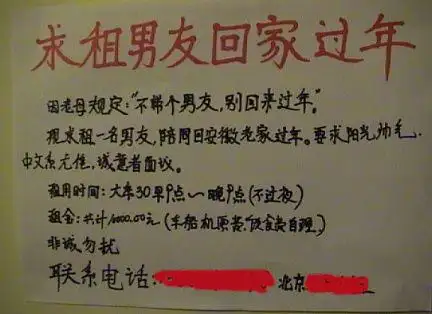 求租男友回家过年
因老母规定:"不带个男友,别回来过年。"
现求租一名男友,陪同回安徽老家过年。要求阳光,帅气.
中文系尤佳,诚意者面议。
租用时间:大年30早9点~晚9点(不过夜)
租金:共计1000.00元(车船机票费,饭食费自理)
非诚勿扰
联系电话: 北京